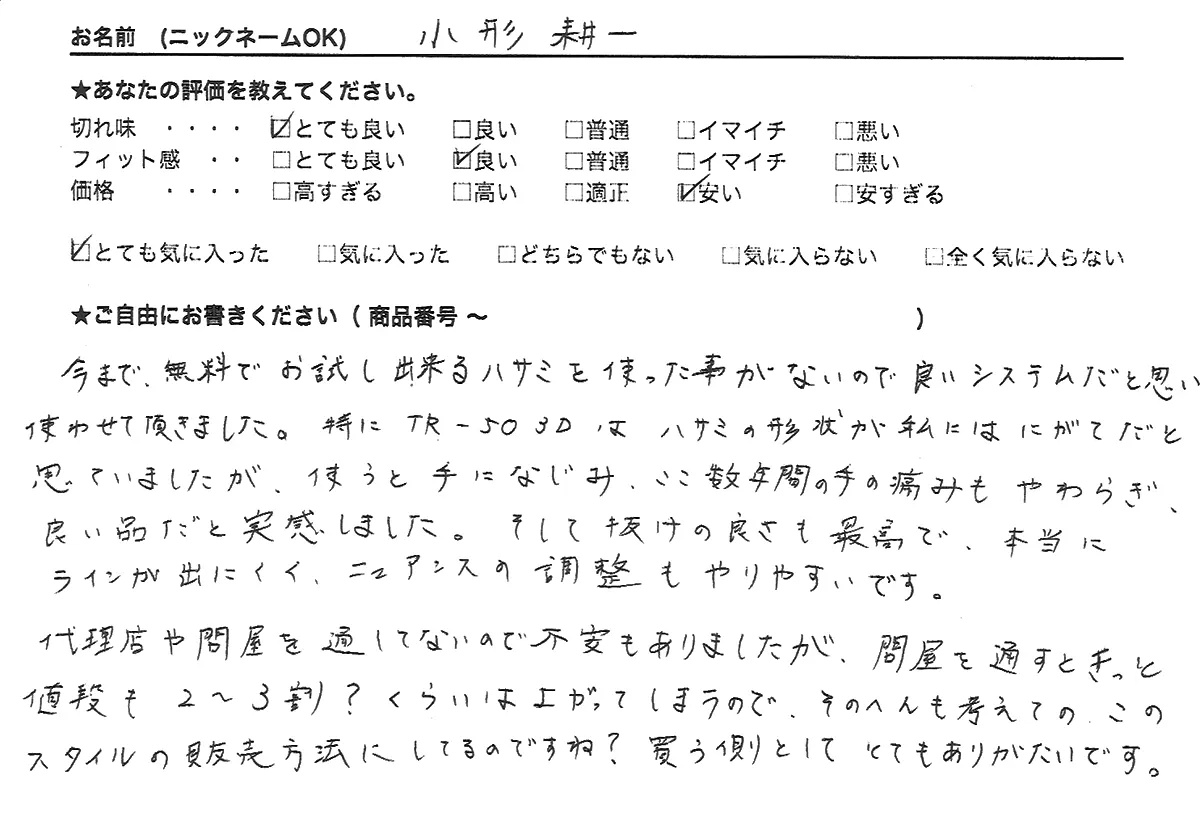 お名前 (ニックネームOK) 小形 耕一
★あなたの評価を教えてください。
切れ味 ・・・・ ☑とても良い □良い □普通 □イマイチ □悪い
フィット感 ・・ □とても良い ☑良い □普通 □イマイチ □悪い
価格 ・・・・ □高すぎる □高い □適正 ☑安い □安すぎる
☑とても気に入った □気に入った □どちらでもない □気に入らない □全く気に入らない
★ご自由にお書きください ( 商品番号 ～ )
今まで、無料でお試し出来るハサミを使った事がないので良いシステムだと思い
使わせて頂きました。特に TR-503D は ハサミの形状が私にはにがてだと
思っていましたが、使うと手になじみ、ここ数年間の手の痛みも やわらぎ、
良い品だと実感しました。そして抜けの良さも最高で、本当に
ラインが出にくく、ニュアンスの調整もやりやすいです。
代理店や問屋を通してないので不安もありましたが、問屋を通すときっと
値段も2～3割?くらいは上がってしまうので、そのへんも考えての、この
スタイルの販売方法にしてるのですね?買う側としてとてもありがたいです。